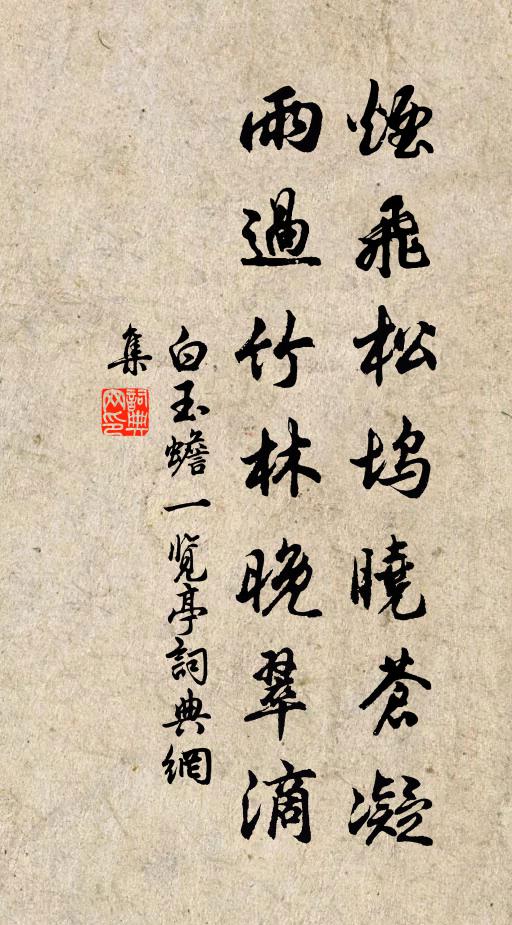 煙飛松塢曉蒼凝
雨過竹林晚翠滴
白玉蟾一覽亭詞典網
集
詞典網印